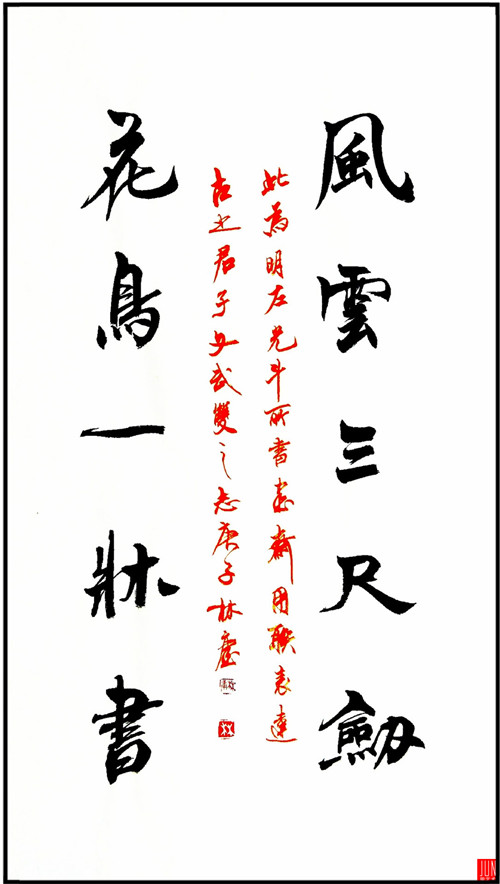 風雲三尺劒
此為明左光斗所書書齋用聯表達
古之君子文武雙之志庚子林
花鳥一牀書
JUN